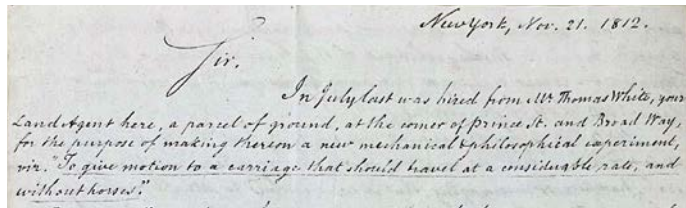 New York, Nov. 21. 1812.
Sir.
In July last was hired from Mr. Thomas White, your
Land Agent here, a parcel of ground, at the corner of Prince St. and Broad Way,
for the purpose of making thereon a new mechanical & philosophical experiment,
viz. "To give motion to a carriage that should travel at a considerable rate, and
without horses."